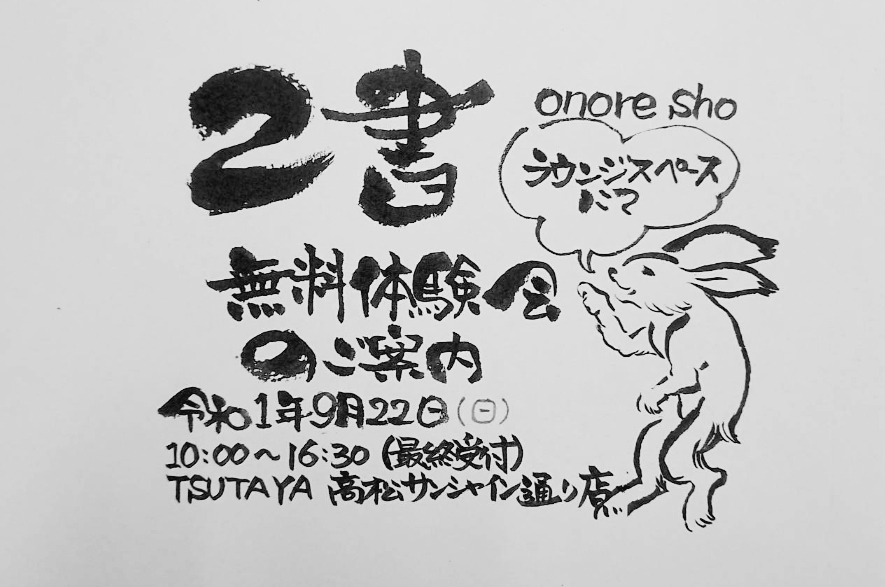 2書
onore sho
ラウンジスペース
にて
無料体験会
のご案内
令和1年9月22日(日)
10:00〜16:30(最終受付)
TSUTAYA 高松サンシャイン通り店